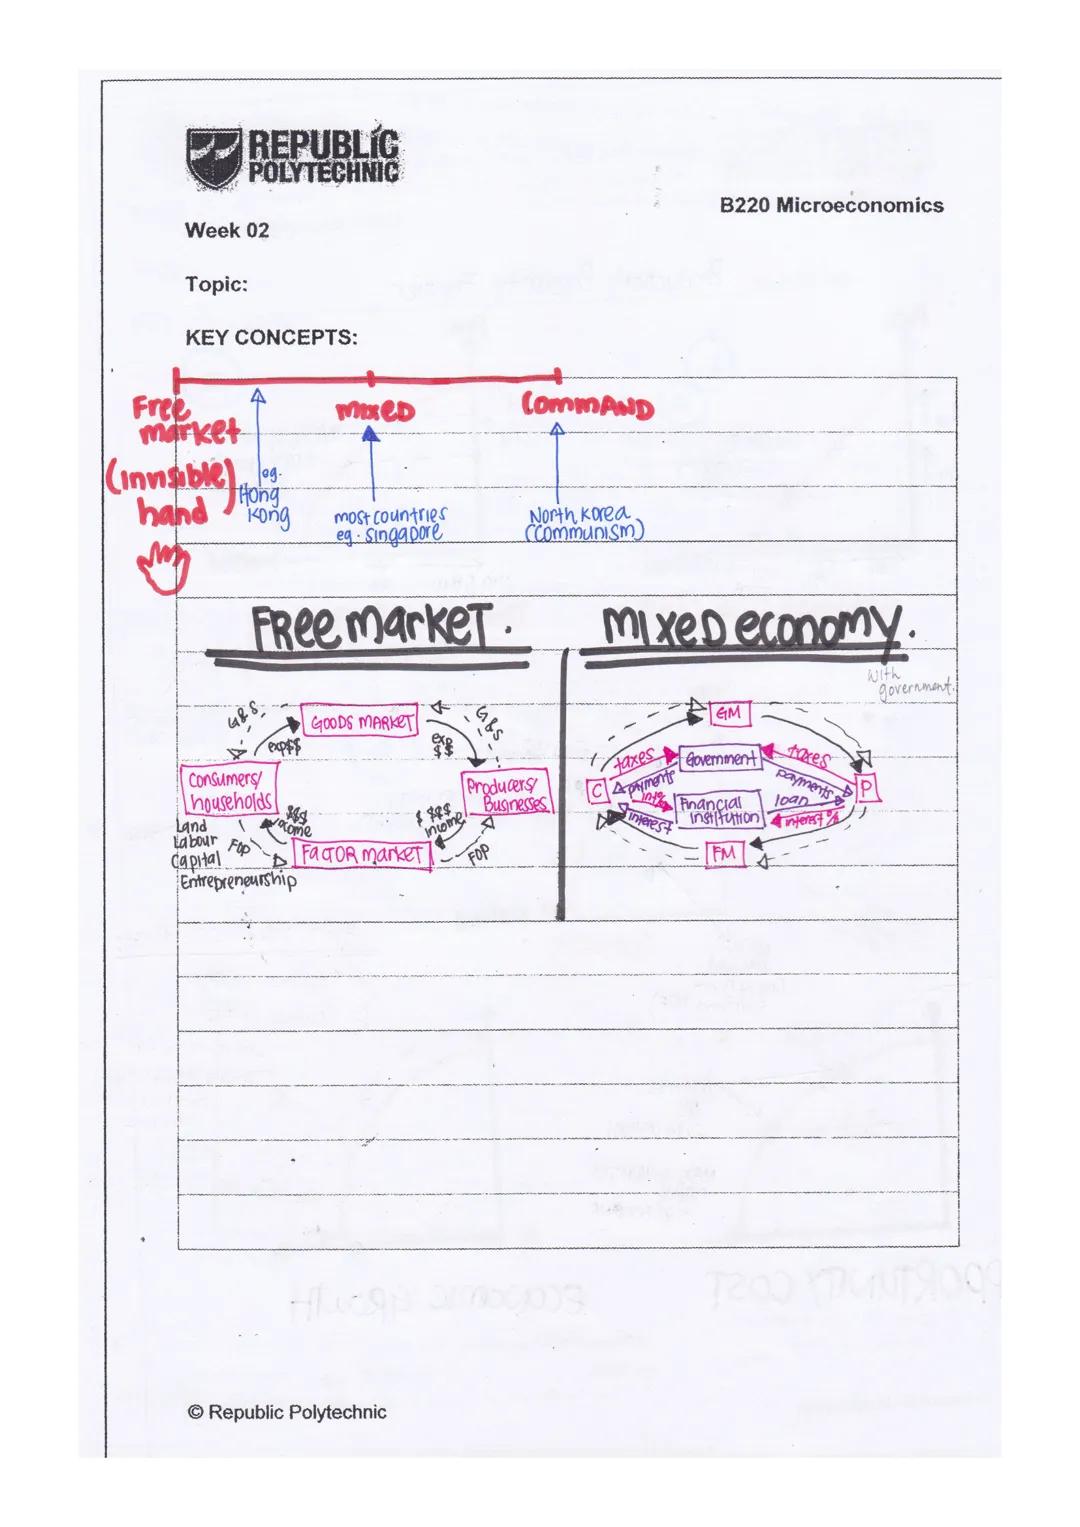 REPUBLIC
POLYTECHNIC
B220 Microeconomics
Week 02
Topic:
KEY CONCEPTS:
Free market
mixed
COMMAND
(invisible hand)
eg. Hong Kong
most countries
eg. singapore
North Korea
(communism)
FREE market.
mixed economy.
with government.
G&S
GOODS MARKET
G&S
exp$$
exp $$
Consumers/
households
Producers/
Businesses
$$$
income
$$$
income
Land
Labour
Capital
Entrepreneurship
FOP
FACTOR market
FOP
GM
taxes
Government
taxes
payments
payments
C
P
int%
Financial
institution
loan
interest
interest %
FM
© Republic Polytechnic